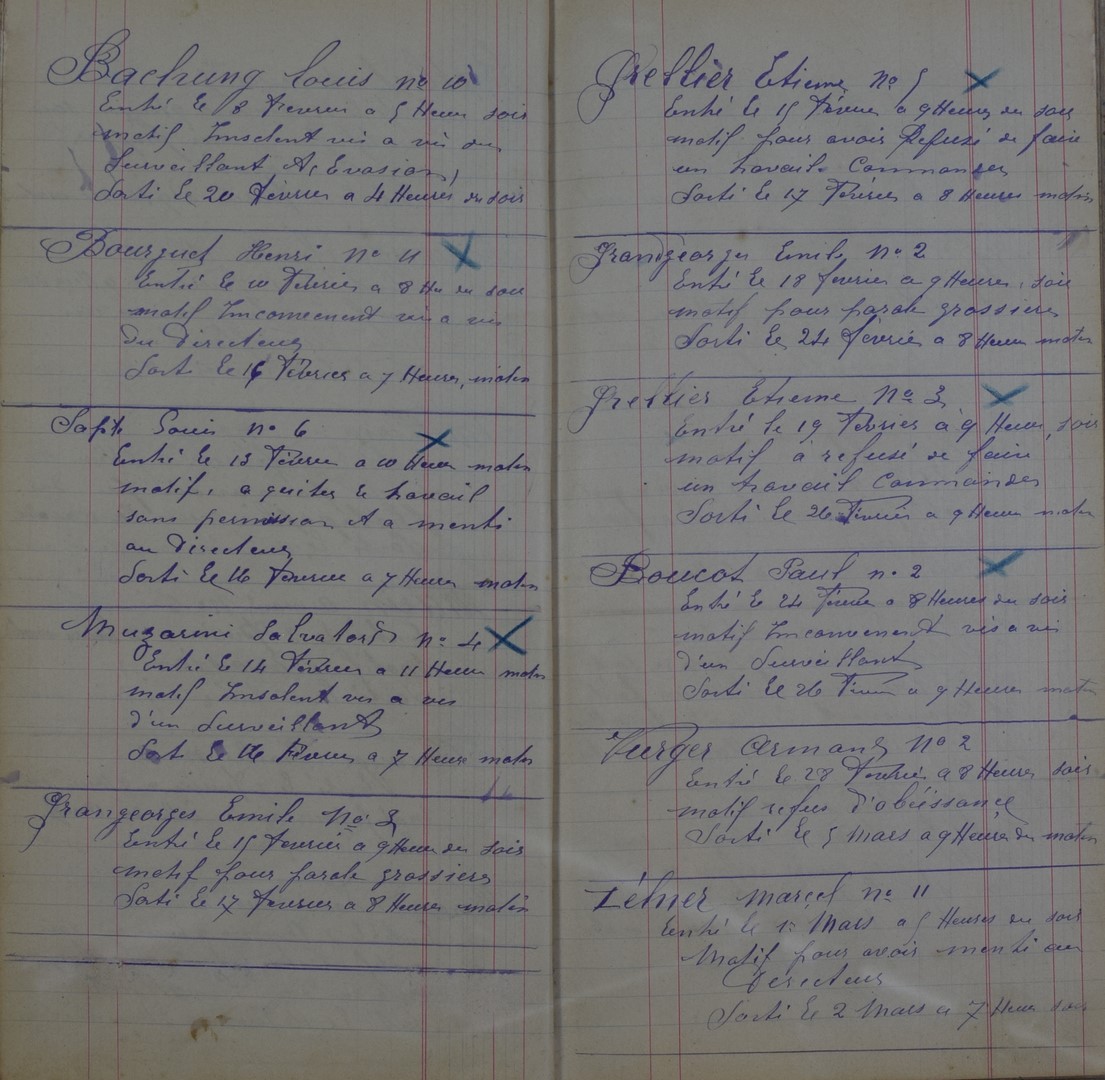 Bachung Louis no 10
Entré le 8 Fevrier a 5 Heures soir
motif Insolent vis a vis du
Surveillant et Evasion,
Sorti le 20 Fevrier a 4 Heures du soir
Bourguet Henri No 11
Entré le 10 Février a 8 He du soir
motif Inconvenent vis a vis
du Directeur
Sorti le 16 Février a 7 Heures matin
Louis no 6
Entré le 13 Février a 10 Heures matin
motif, a quiter le travail
sans permission et a menti
au Directeur
Sorti le 16 Fevrier a 7 Heures matin
Muzarini Salvatore no 4
Entré le 14 Février a 11 Heures matin
motif Insolent vis a vis
d'un Surveillant
Sort le 16 Fevrier a 7 Heures matin
Grangeorges Emile No 3
Entré le 15 Fevrier a 9 Heures du soir
motif pour parole grossiere
Sorti le 17 Fevrier a 8 Heures matin
Grellier Etienne No 5
Entré le 15 Février a 9 Heures du soir
motif pour avoir Refusé de faire
un travail Commander
Sorti le 17 Fevrier a 8 Heures matin
Grandgeorges Emile No 2
Entré le 18 fevrier a 9 Heures soir
motif pour parole grossiere
Sorti le 24 fevrier a 8 Heures matin
Grellier Etienne No 3
Entré le 19 Fevrier à 9 Heures soir
motif à refusé de faire
un travail Commander
Sorti le 26 Fevrier a 9 Heures matin
Boucot Paul no 2
Entré le 24 Fevrier a 8 Heures du soir
motif Inconvenent vis a vis
d'un Surveillant
Sorti le 26 Fevrier a 9 Heures matin
Vurger Armand No 2
Entré le 28 Fevrier a 8 Heures soir
motif refus d'obéissance
Sorti le 5 Mars a 9 Heures du matin
Zélner Marcel no 11
Entré le 1r Mars a 5 Heures du soir
Motif pour avoir menti au
Directeur
Sorti le 2 Mars a 7 Heures soir